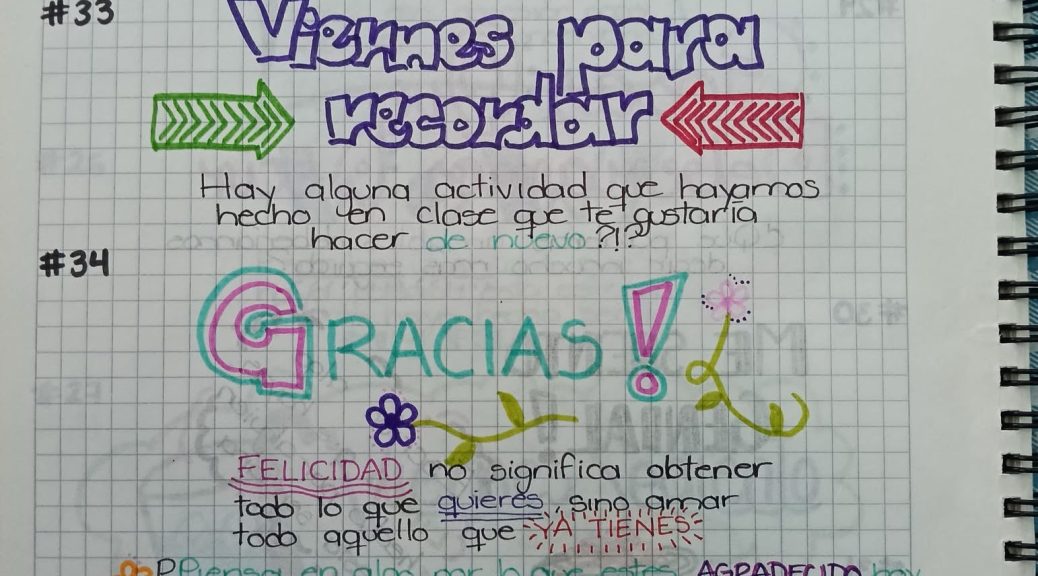 #33
Viernes para
recordar
Hay alguna actividad que hayamos
hecho en clase que te gustaría
hacer de nuevo?!?
#34
GRACIAS!
FELICIDAD no significa obtener
todo lo que quieres, sino amar
todo aquello que YA TIENES
Piensa en algo por lo que estés AGRADECIDO hoy